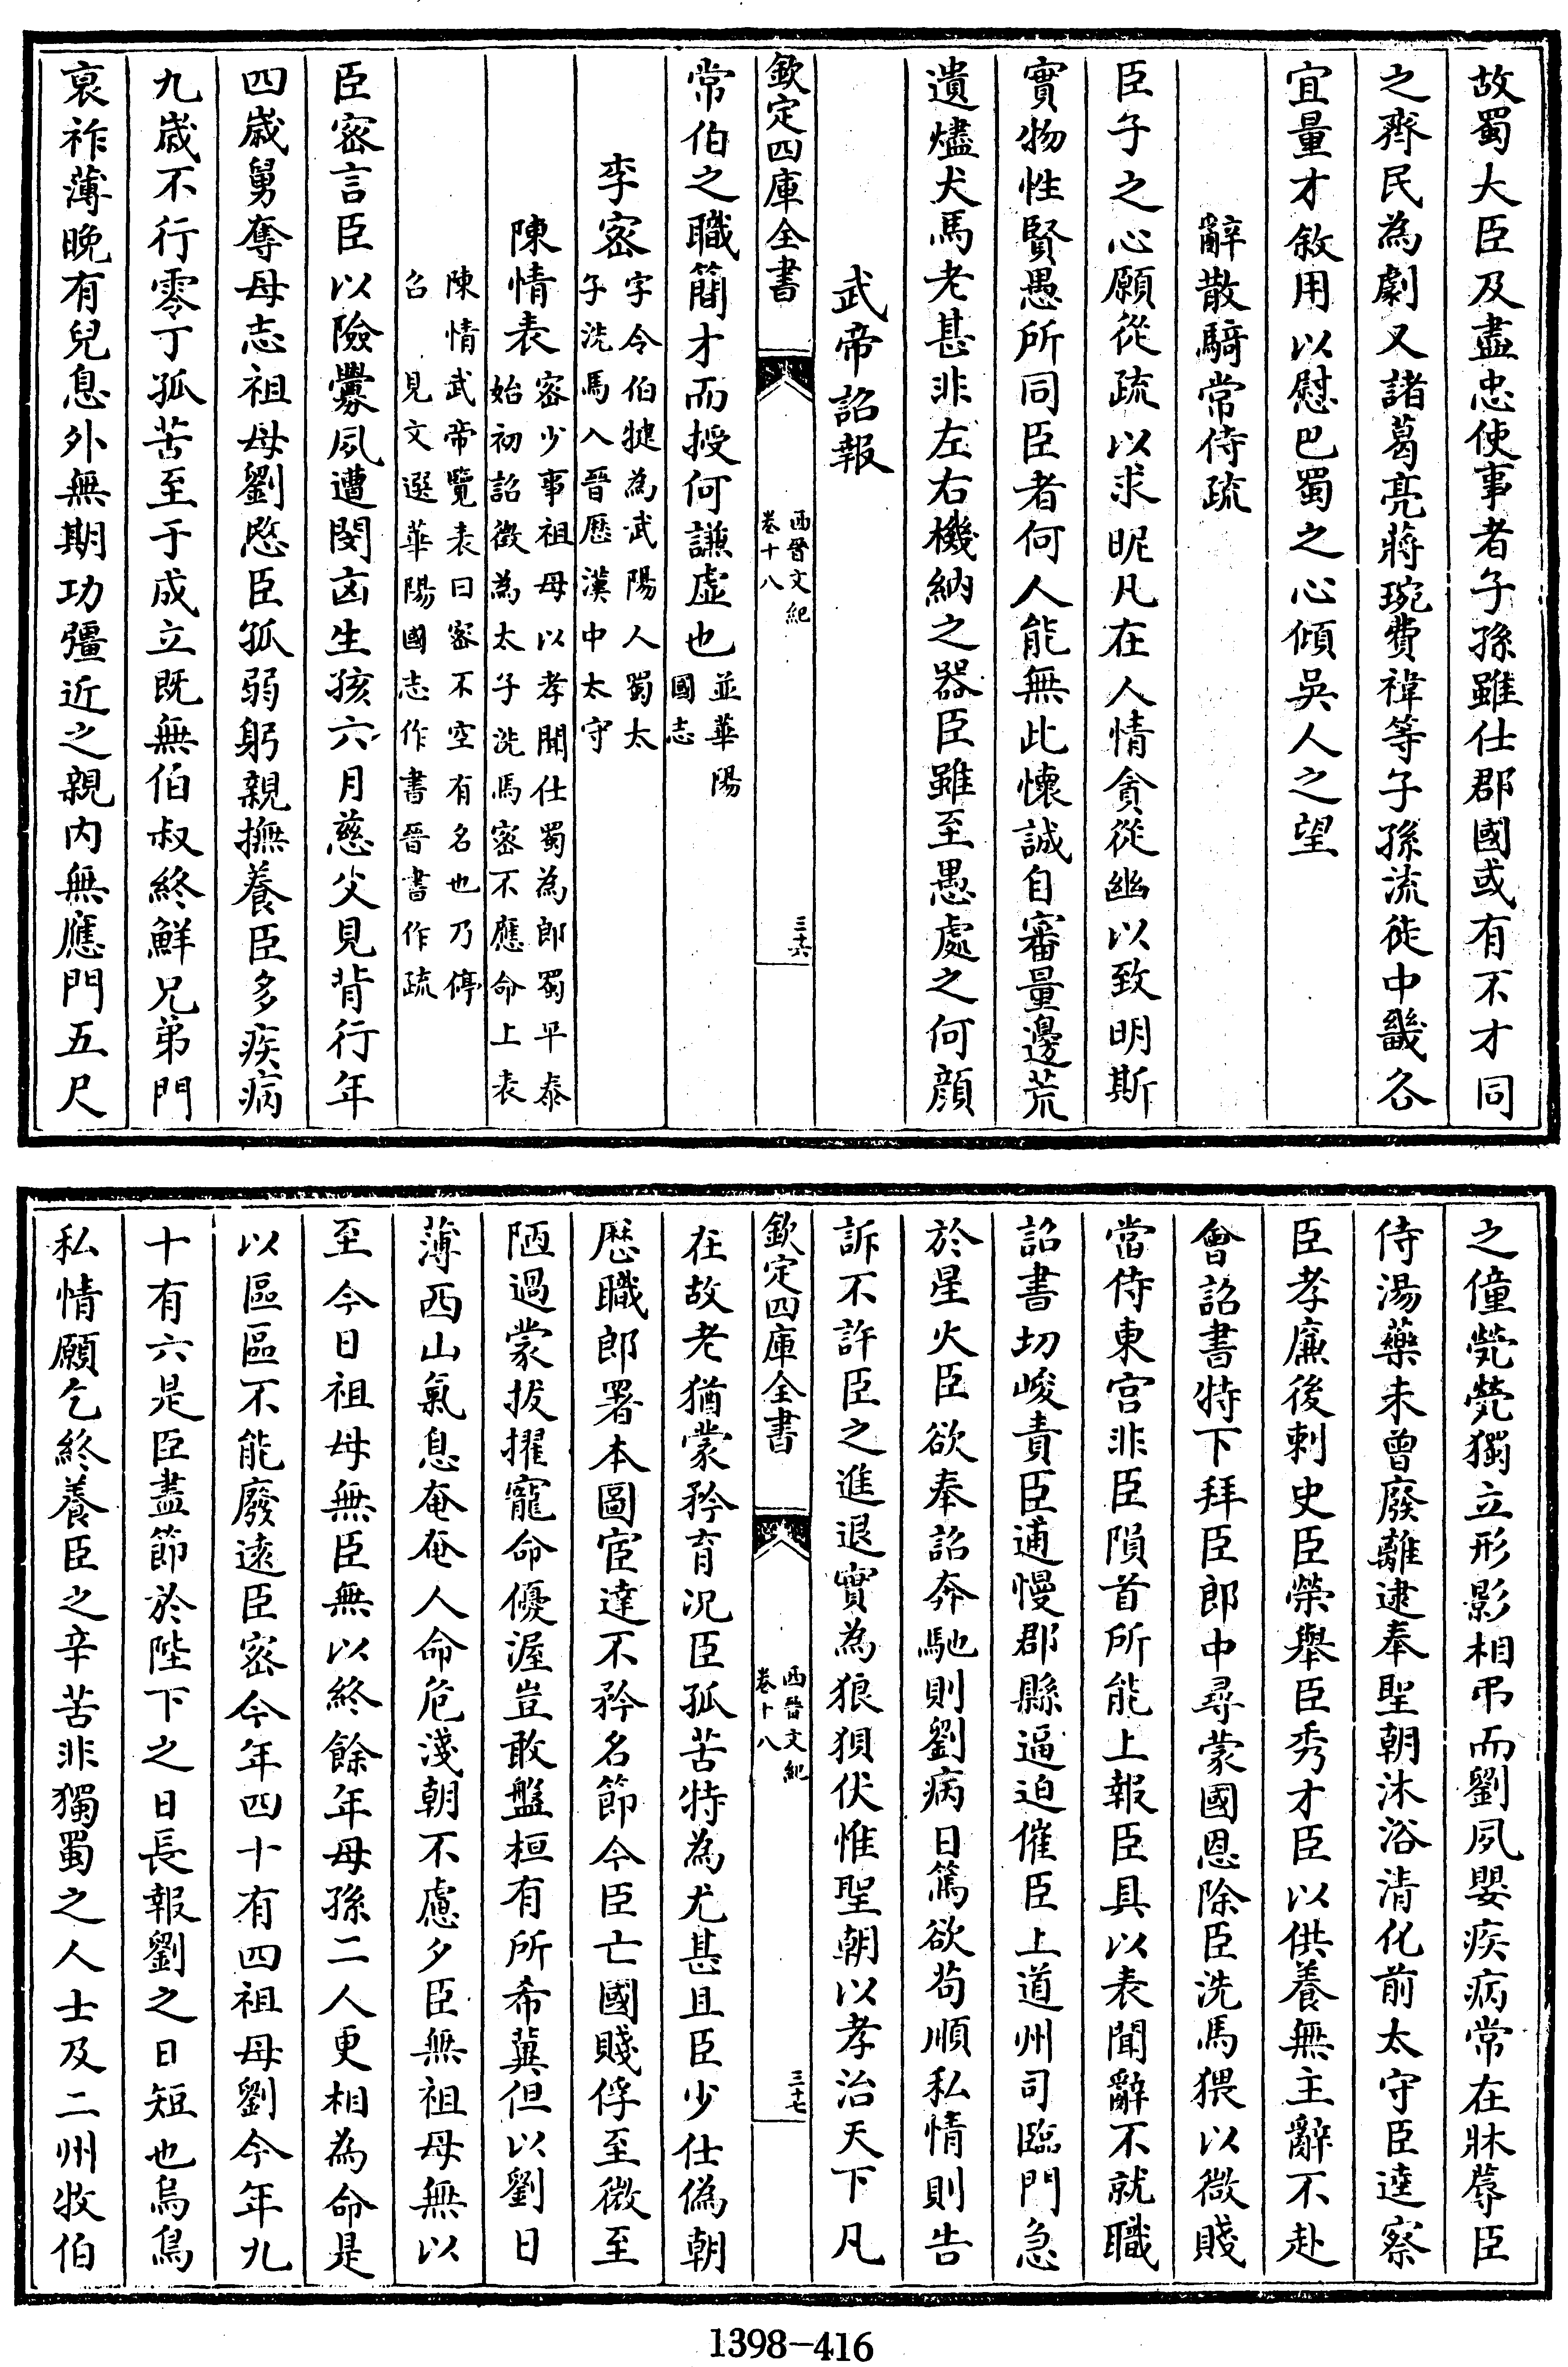 故蜀大臣及盡忠使事者子孫雖仕郡國或有不才同
之齊民為劇又諸葛亮蔣琬費禕等子孫流徙中畿各
宜量才敘用以慰巴蜀之心傾吳人之望
辭散騎常侍疏
臣子之心願從疏以求昵凡在人情貪從幽以致明斯
實物性賢愚所同臣者何人能無此懷誠自審量邊荒
遺燼犬馬老甚非左右機納之器臣雖至愚處之何顔
武帝詔報
欽定四庫全書
西晉文紀
卷十八
三十六
常伯之職簡才而授何謙虛也
並華陽
國志
李密
字令伯犍為武陽人蜀太
子洗馬入晉歷漢中太守
陳情表
密少事祖母以孝聞仕蜀為郎蜀平泰
始初詔徵為太子洗馬密不應命上表
陳情武帝覽表曰密不空有名也乃停
召 見文選華陽國志作書晉書作疏
臣密言臣以險釁夙遭閔凶生孩六月慈父見背行年
四歲舅奪母志祖母劉愍臣孤弱躬親撫養臣多疾病
九歲不行零丁孤苦至于成立既無伯叔終鮮兄弟門
衰祚薄晚有兒息外無期功彊近之親内無應門五尺
之僮煢煢獨立形影相弔而劉夙嬰疾病常在牀蓐臣
侍湯藥未曾廢離逮奉聖朝沐浴清化前太守臣逵察
臣孝廉後刺史臣榮舉臣秀才臣以供養無主辭不赴
會詔書特下拜臣郎中尋蒙國恩除臣洗馬猥以微賤
當侍東宫非臣隕首所能上報臣具以表聞辭不就職
詔書切峻責臣逋慢郡縣逼迫催臣上道州司臨門急
於星火臣欲奉詔奔馳則劉病日篤欲茍順私情則告
訴不許臣之進退實為狼狽伏惟聖朝以孝治天下凡
欽定四庫全書
西晉文紀
卷十八
三十七
在故老猶蒙矜育况臣孤苦特為尤甚且臣少仕偽朝
歷職郎署本圖宦達不矜名節今臣亡國賤俘至微至
陋過蒙拔擢寵命優渥豈敢盤桓有所希冀但以劉日
薄西山氣息奄奄人命危淺朝不慮夕臣無祖母無以
至今日祖母無臣無以終餘年母孫二人更相為命是
以區區不能廢遠臣密今年四十有四祖母劉今年九
十有六是臣盡節於陛下之日長報劉之日短也烏鳥
私情願乞終養臣之辛苦非獨蜀之人士及二州牧伯
1398-416